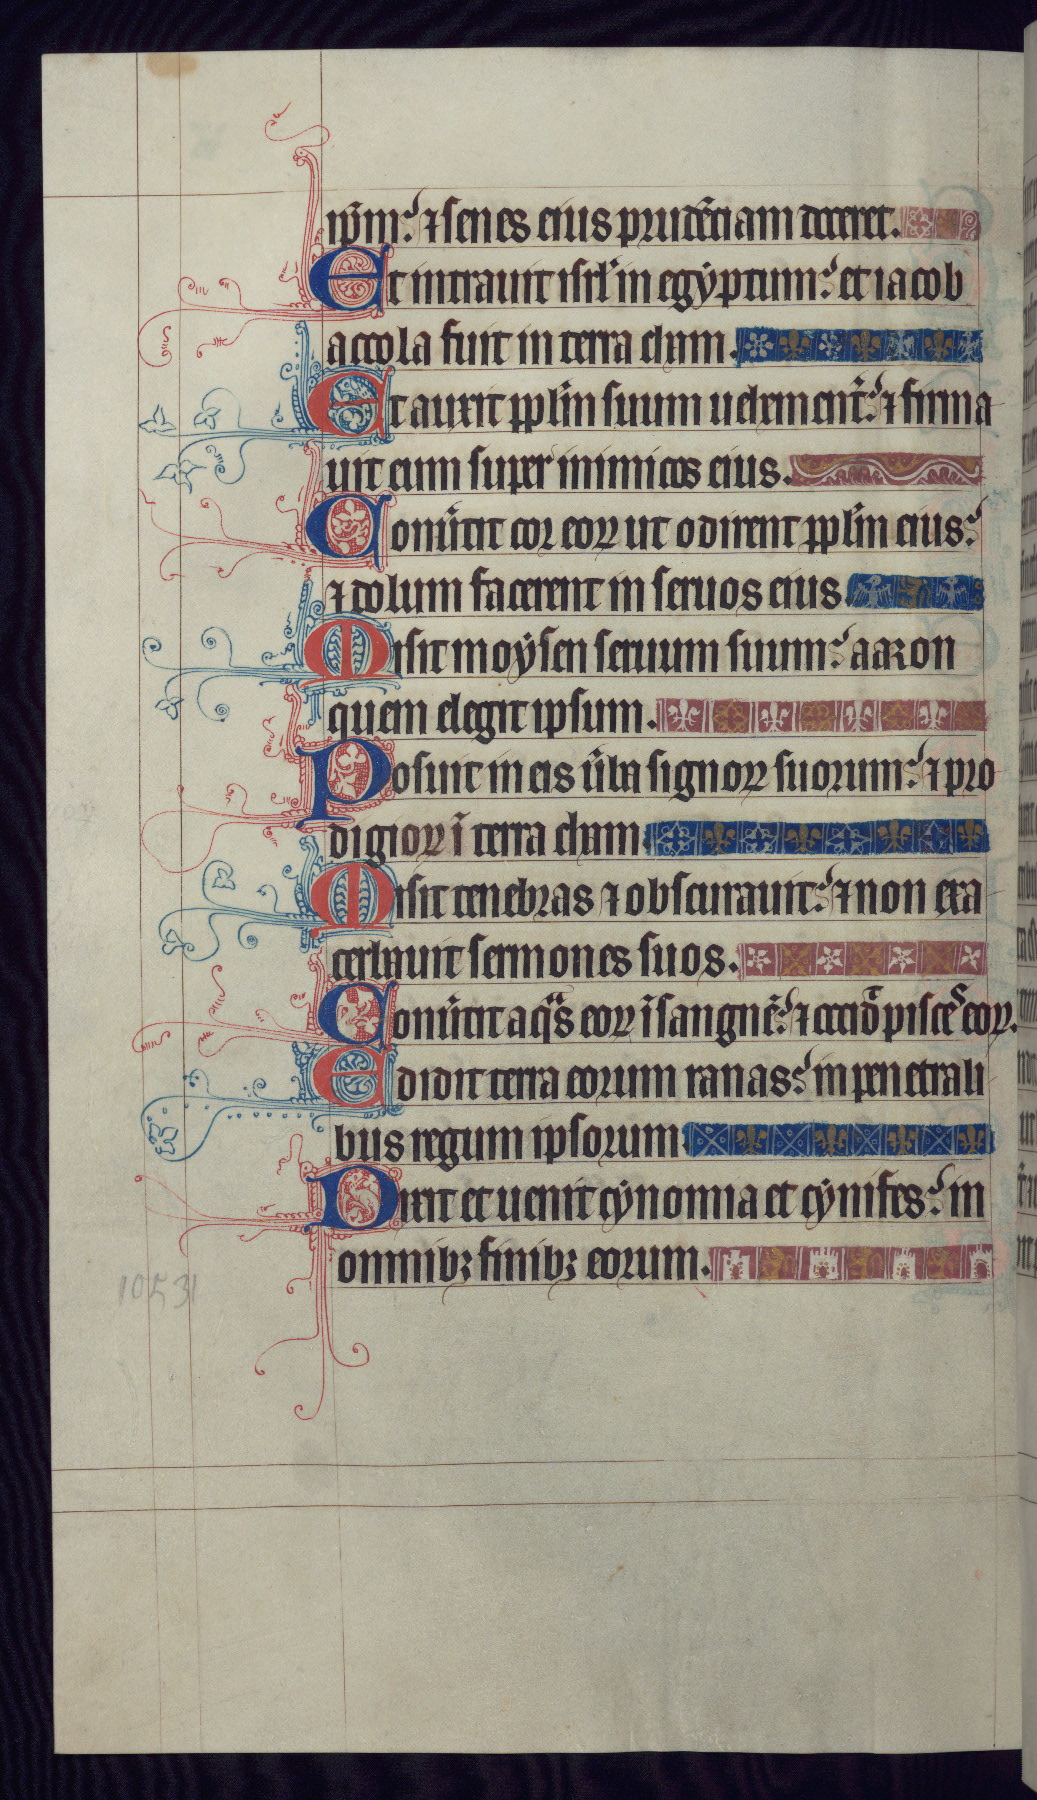 ip̄m: ⁊ senes eius prudēciam doceret.
Et intrauit isrl̄ in egẏptum: et iacob
accola fuit in terra cham.
Et auxit ppl̄m suum uehement̄: ⁊ firma
uit eum super inimicos eius.
Conūtit cor eoꝝ ut odirent ppl̄m eius:
⁊ dolum facerent in seruos eius
Misit moẏsen seruum suum: aaron
quem elegit ipsum.
Posuit in eis ūba signoꝝ suorum: ⁊ pro
digioꝝ ī terra cham
Misit tenebras ⁊ obscurauit: ⁊ non exa
cerbauit sermones suos.
Conūtit aqͣs eoꝝ ī sangnē: ⁊ occiđ pisces eoꝝ.
Edidit terra eorum ranas: in penetrali
bus regum ipsorum
Dixit et uenit cẏnomia et cẏnifes: in
omnibꝫ finibꝫ eorum.
10531